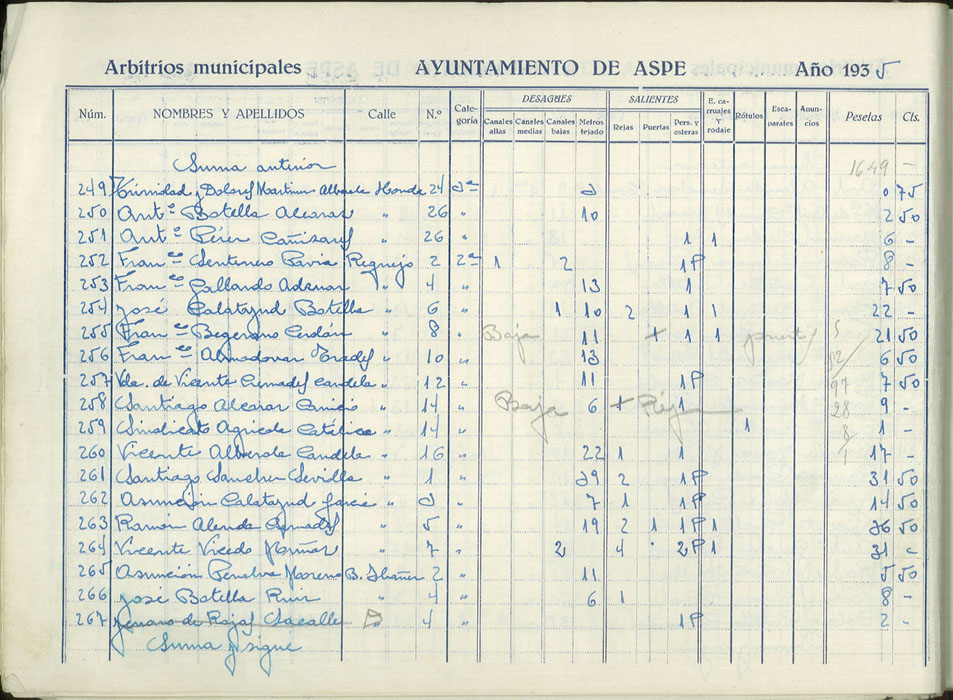 Arbitrios municipales AYUNTAMIENTO DE ASPE Año 1935
Núm. NOMBRES Y APELLIDOS Calle N.º Cate-goría DESAGUES Canales altas Canales medias Canales bajas Metros tejado SALIENTES Rejas Puertas Pers. y esteras E. ca-rruajes y rodaje Rótulos Esca-parates Anun-cios Pesetas Cts.
Suma anterior 1649 -
249 Trinidad y Dolores Martinez Alberola Honda 24 2ª 2 0 75
250 Antº Botella Alcaraz " 26 " 10 2 50
251 Antº Pérez Cañizares " 26 " 1 1 6 -
252 Franco Sentenero Pavia Reguejo 2 2ª 1 2 1P 8 -
253 Franco Gallardo Adsuar " 4 " 13 1 7 50
254 José Calatayud Botella " 6 " 1 10 2 1 1 22 -
255 Franco Begerano Cerdán " 8 " Baja 11 + 1 1 puertas 5 21 50
256 Franco Almodovar Prades " 10 " 13 12 6 50
257 Vda. de Vicente Cremades Candela " 12 " 11 1P 97 7 50
258 Santiago Alcaraz " 14 " Baja 6 + Rejas 1 28 9 -
259 Sindicato Agricola Católico " 14 " 1 8 1 -
260 Vicente Alberola Candela " 16 " 22 1 1 1 17 -
261 Santiago Sanchez Sevilla " 1 " 29 2 1P 31 50
262 Asunción Calatayud Garcia " 2 " 7 1 1P 14 50
263 Ramon Alenda Cremades " 5 " 19 2 1 1P 1 36 50
264 Vicente Vicedo " 7 " 2 4 " 2P 1 31 -
265 Asunción Penalva Moreno B. Ibañez 2 " 11 5 50
266 José Botella Ruiz " 4 " 6 1 8 -
267 Jenaro de Rojas " 4 " 1P 2 -
Suma y sigue